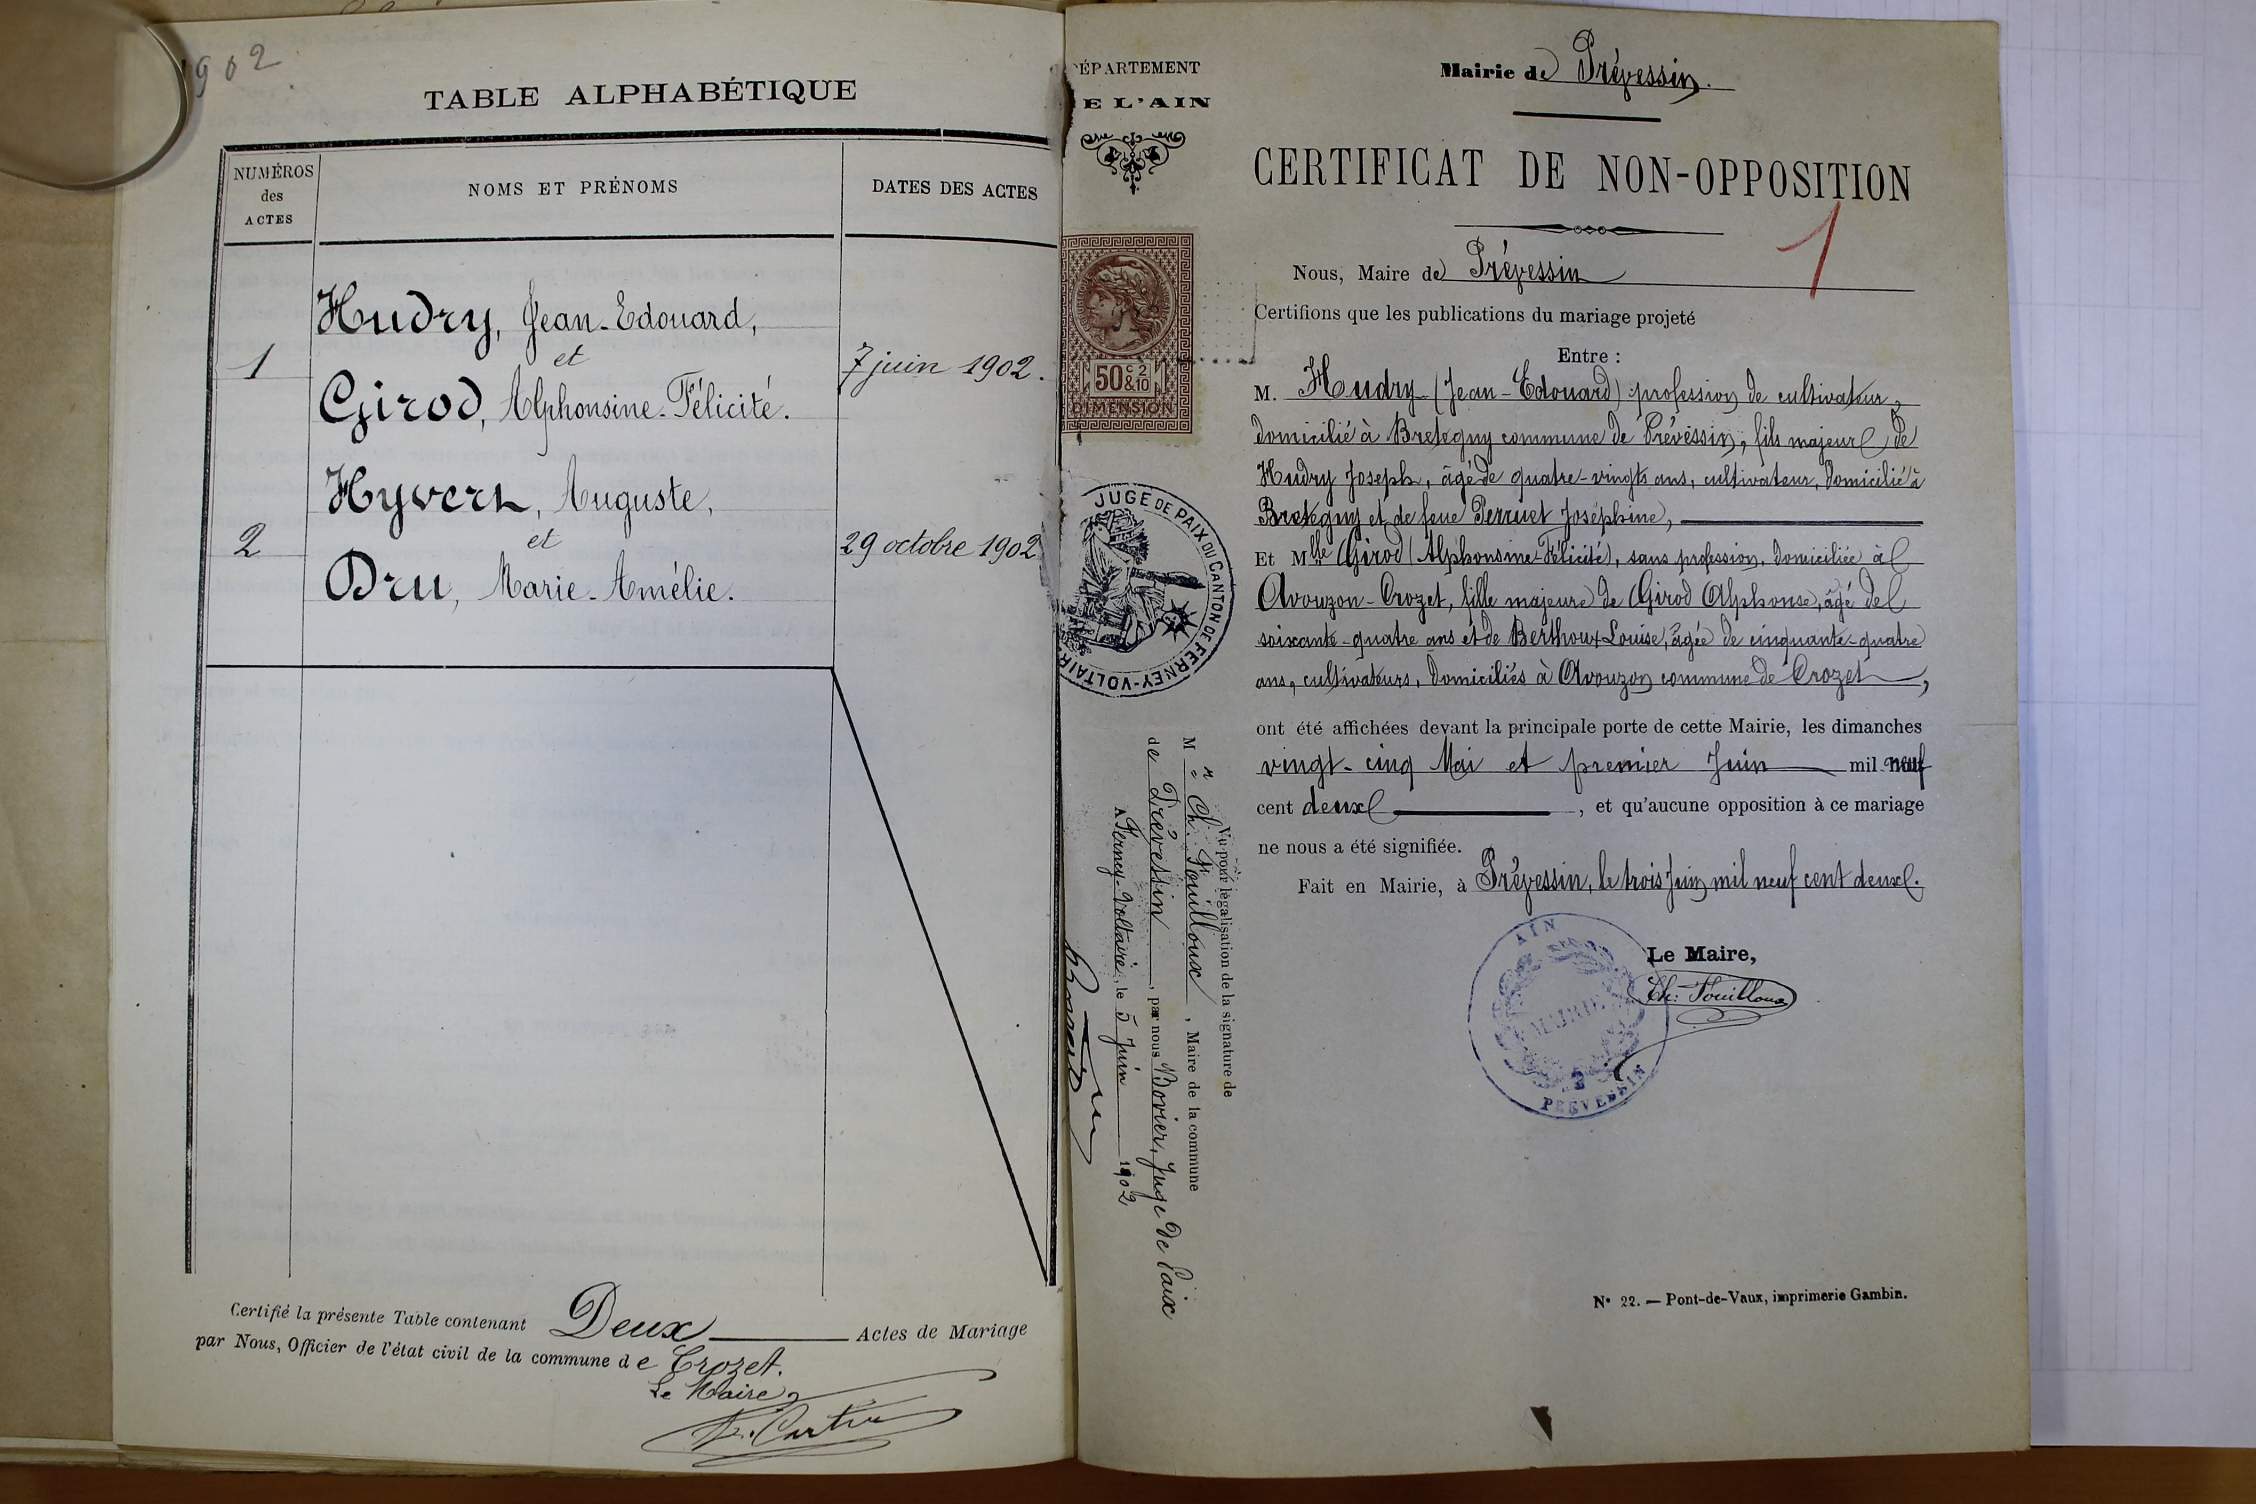 1902
TABLE ALPHABÉTIQUE
NUMÉROS
des
ACTES
NOMS ET PRÉNOMS
DATES DES ACTES
Hudry, Jean-Edouard,
et
1
7 juin 1902.
Girod, Alphonsine-Félicité.
Hyvert, Auguste,
et
2
29 octobre 1902
Dru, Marie-Amélie.
Certifié la présente Table contenant Deux Actes de Mariage
par Nous, Officier de l'état civil de la commune de Crozet.
Le Maire
DÉPARTEMENT
DE L'AIN
Mairie de Prévessin.
CERTIFICAT DE NON-OPPOSITION
1
Nous, Maire de Prévessin
Certifions que les publications du mariage projeté
Entre :
M. Hudry (Jean-Edouard) profession de cultivateur,
domicilié à Bretegny commune de Prévessin, fils majeur de
Hudry Joseph, âgé de quatre-vingts ans, cultivateur, domicilié à
Bretegny et de feue Perruet Joséphine,
Et Mlle Girod (Alphonsine-Félicité), sans profession, domiciliée à
Avouzon-Crozet, fille majeure de Girod Alphonse, âgé de
soixante-quatre ans et de Berthoux Louise, âgée de cinquante-quatre
ans, cultivateurs, domiciliés à Avouzon commune de Crozet,
ont été affichées devant la principale porte de cette Mairie, les dimanches
vingt-cinq Mai et premier Juin mil neuf
cent deux, et qu'aucune opposition à ce mariage
ne nous a été signifiée.
Fait en Mairie, à Prévessin, le trois Juin mil neuf cent deux.
Le Maire,
Ch. Fouilloux
AIN
MAIRIE
PREVESSIN
50 c 2 & 10
DIMENSION
JUGE DE PAIX DU CANTON DE FERNEY-VOLTAIRE
Vu pour légalisation de la signature de
Mr Ch. Fouilloux, Maire de la commune
de Prévessin, par nous Bovier, Juge de Paix
A Ferney-Voltaire, le 5 Juin 1902
N° 22. — Pont-de-Vaux, imprimerie Gambin.